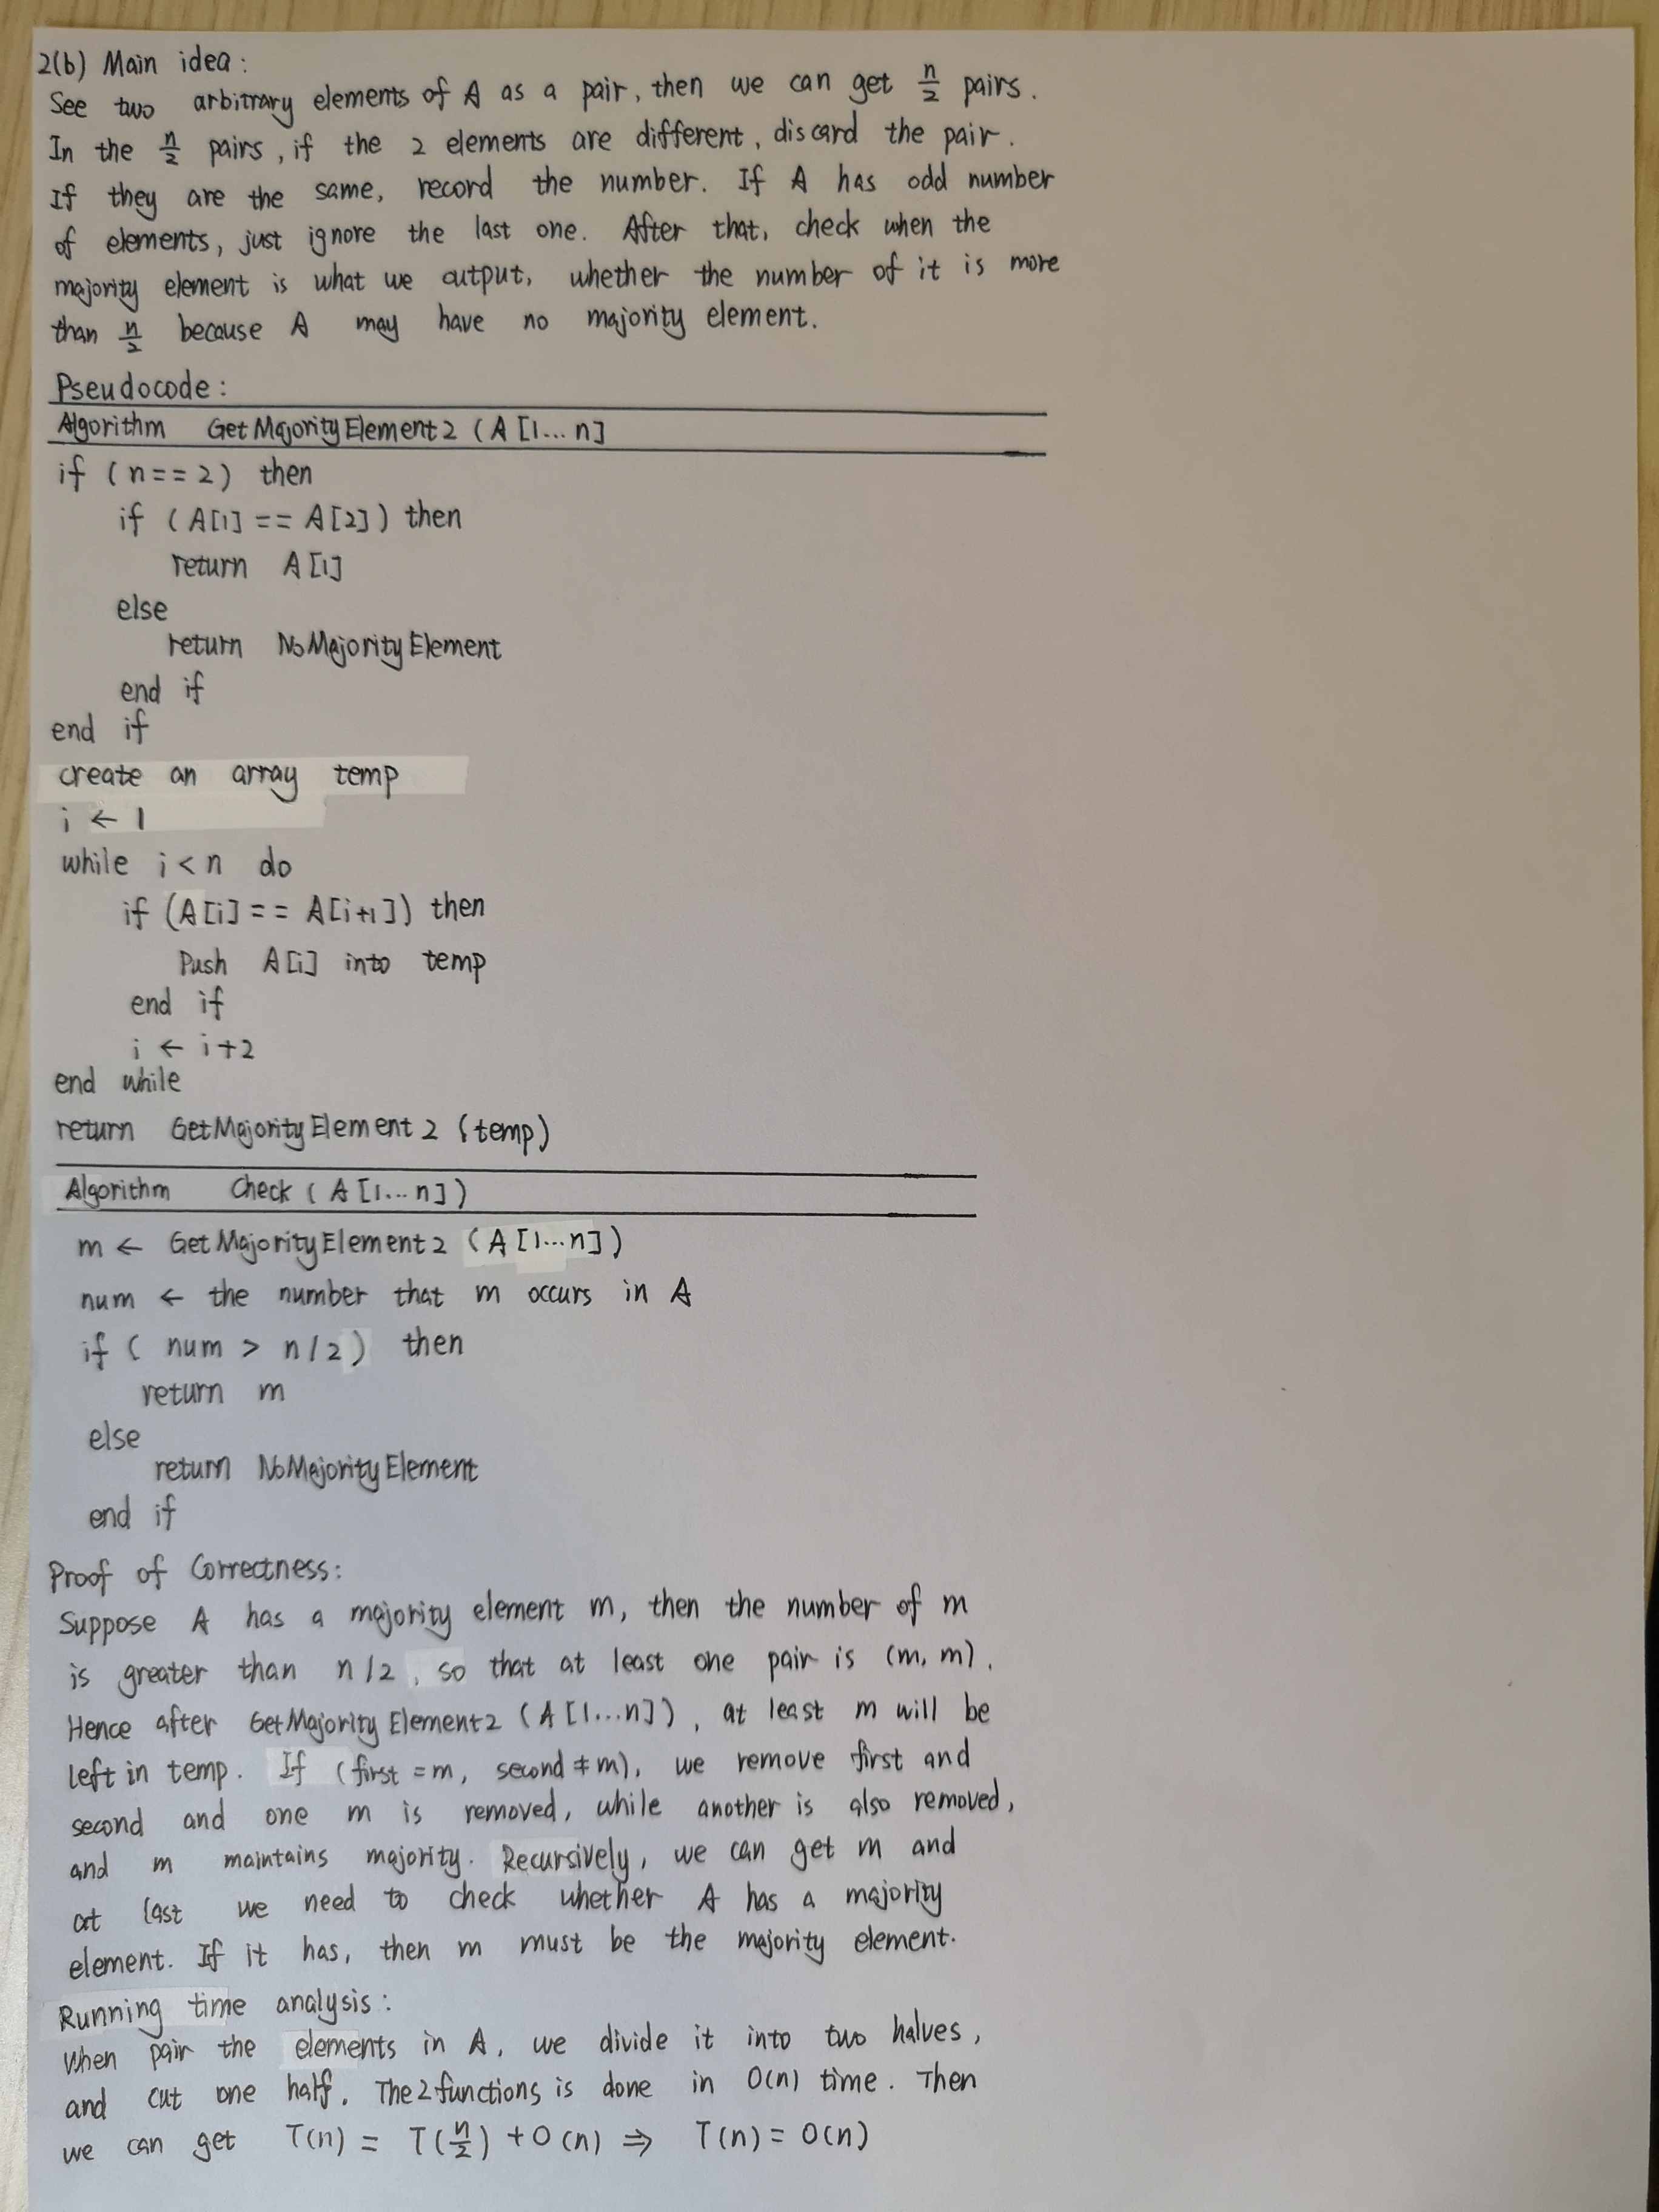 2(b) Main idea:
See two arbitrary elements of A as a pair, then we can get n/2 pairs.
In the n/2 pairs, if the 2 elements are different, discard the pair.
If they are the same, record the number. If A has odd number
of elements, just ignore the last one. After that, check when the
majority element is what we output, whether the number of it is more
than n/2 because A may have no majority element.
Pseudocode:
Algorithm GetMajorityElement2 (A[1...n]
if (n==2) then
if (A[1] == A[2]) then
return A[1]
else
return NoMajorityElement
end if
end if
create an array temp
i ← 1
while i<n do
if (A[i] == A[i+1]) then
Push A[i] into temp
end if
i ← i+2
end while
return GetMajorityElement2 (temp)
Algorithm Check (A[1...n])
m ← GetMajorityElement2 (A[1...n])
num ← the number that m occurs in A
if ( num > n/2) then
return m
else
return NoMajorityElement
end if
Proof of Correctness:
Suppose A has a majority element m, then the number of m
is greater than n/2, so that at least one pair is (m, m).
Hence after GetMajorityElement2 (A[1...n]), at least m will be
left in temp. If (first = m, second ≠ m), we remove first and
second and one m is removed, while another is also removed,
and m maintains majority. Recursively, we can get m and
at last we need to check whether A has a majority
element. If it has, then m must be the majority element.
Running time analysis:
When pair the elements in A, we divide it into two halves,
and cut one half. The 2 functions is done in O(n) time. Then
we can get T(n) = T(n/2) + O(n) ⇒ T(n) = O(n)